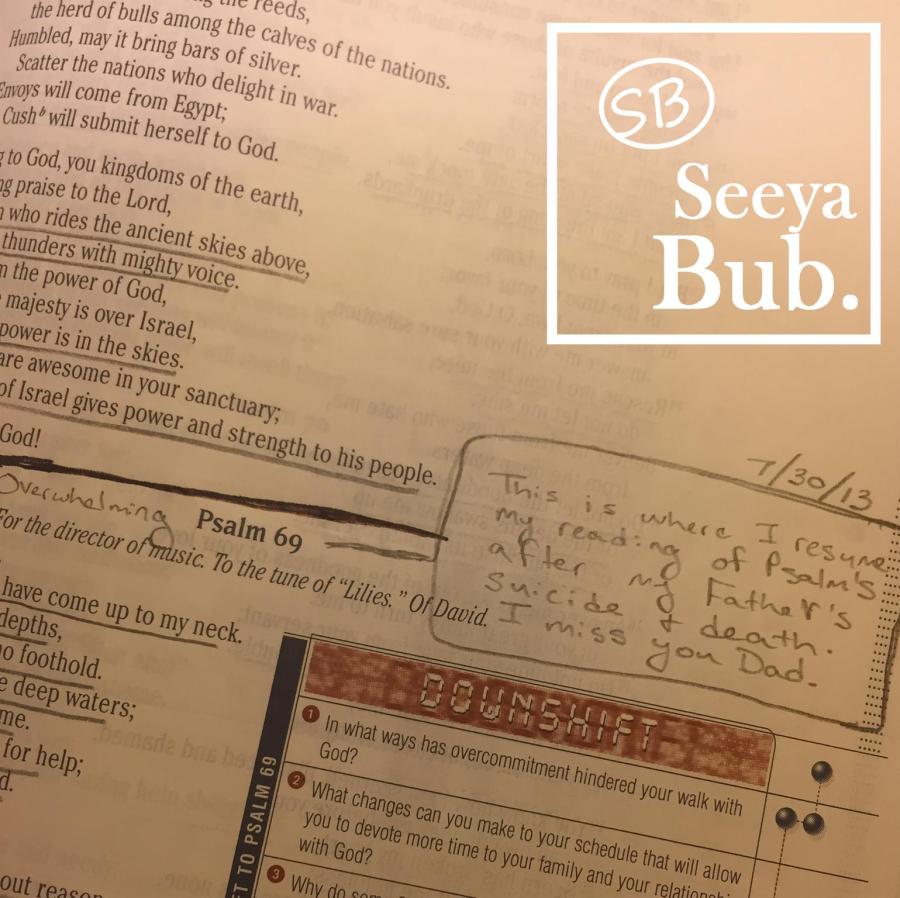 the reeds,
the herd of bulls among the calves of the nations.
Humbled, may it bring bars of silver.
Scatter the nations who delight in war.
Envoys will come from Egypt;
Cushᵇ will submit herself to God.
to God, you kingdoms of the earth,
praise to the Lord,
who rides the ancient skies above,
thunders with mighty voice.
the power of God,
majesty is over Israel,
power is in the skies.
are awesome in your sanctuary;
of Israel gives power and strength to his people.
God!
Overwhelming
Psalm 69
For the director of music. To the tune of “Lilies.” Of David.
have come up to my neck.
depths,
no foothold.
deep waters;
me.
for help;
out reason
SB
Seeya
Bub.
7/30/13
This is where I resume
my reading of Psalm's
after my Father's
suicide & death.
I miss you Dad.
DOWNSHIFT
1 In what ways has overcommitment hindered your walk with
God?
2 What changes can you make to your schedule that will allow
you to devote more time to your family and your
with God?
3 Why do
TO PSALM 69